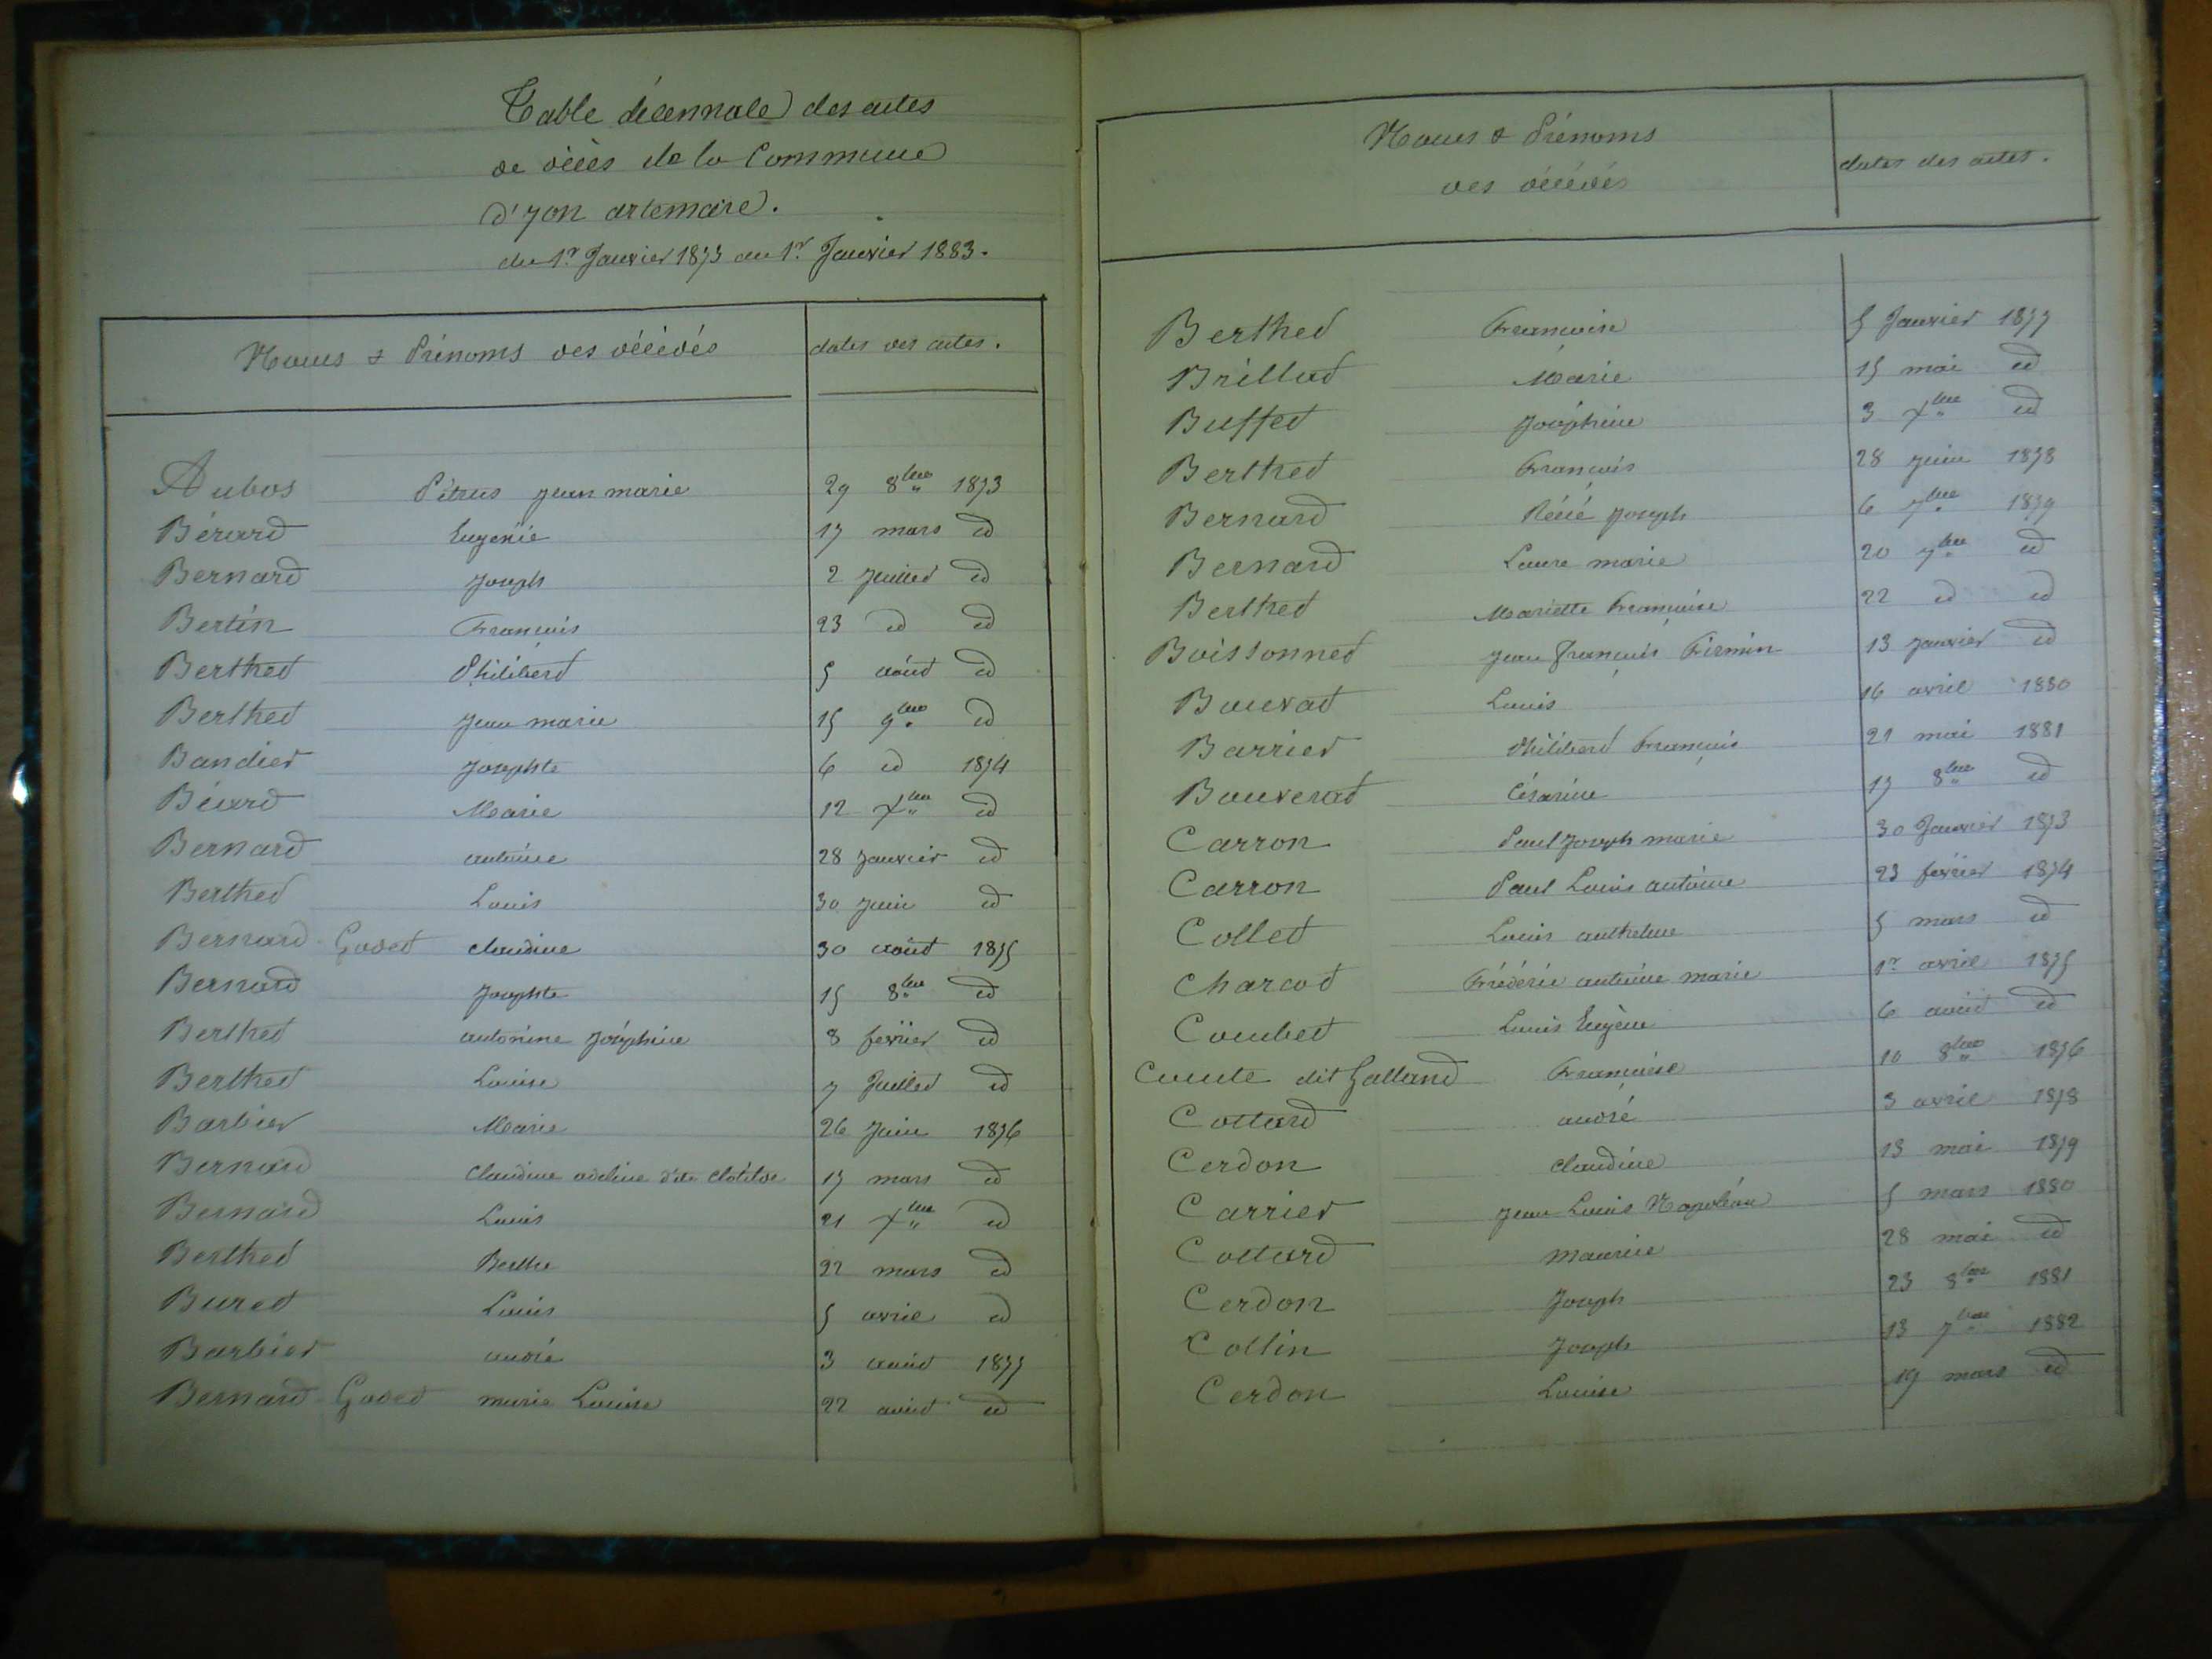 Table décennale des actes
de décès de la Commune
d'yon artemare.
du 1er Janvier 1873 au 1er Janvier 1883.
Noms & Prénoms des décédés dates des actes.
Aubos Pétrus jean marie 29 8bre 1873
Bérard Eugénie 17 mars id
Bernard joseph 2 Juillet id
Bertin François 23 id id
Berthet Philibert 5 août id
Berthet jean marie 15 9bre id
Bandier josephte 6 id 1874
Bérard Marie 12 Xbre id
Bernard antoine 28 janvier id
Berthet Louis 30 juin id
Bernard Godet claudine 30 août 1875
Bernard josephte 15 8bre id
Berthet antonine joséphine 8 février id
Berthet Louise 7 Juillet id
Barbier Marie 26 juin 1876
Bernard claudine adeline dite clotilde 17 mars id
Bernard Louis 21 Xbre id
Berthet Berthe 22 mars id
Buret Louis 5 avril id
Barbier andré 3 août 1877
Bernard Godet marie Louise 22 août id
Noms & Prénoms
des décédés
dates des actes.
Berthet Françoise 5 Janvier 1877
Brillat Marie 15 mai id
Buffet joséphine 3 Xbre id
Berthet François 28 juin 1878
Bernard Réné joseph 6 7bre 1879
Bernard Laure marie 20 7bre id
Berthet Mariette Françoise 22 id id
Boissonnet jean françois Firmin 13 janvier id
Bouvat Louis 16 avril 1880
Barrier Philibert François 21 mai 1881
Bouverat Césarine 17 8bre id
Carron Paul joseph marie 30 Janvier 1873
Carron Paul Louis antoine 23 février 1874
Collet Louis anthelme 5 mars id
Charcot Frédéric antoine marie 1er avril 1875
Combet Louis Eugène 6 août id
Comte dit Galland Françoise 10 8bre 1876
Cottard andré 3 avril 1878
Cerdon claudine 13 mai 1879
Carrier jean Louis Napoléon 5 mars 1880
Cottard maurice 28 mai id
Cerdon joseph 23 8bre 1881
Collin joseph 13 7bre 1882
Cerdon Louise 19 mars id